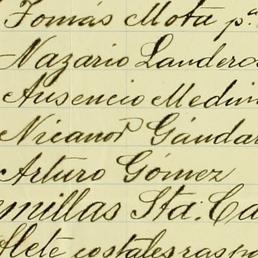 Tomás Mota p.a
Nazario Landeros
Ausencio Medin
Nicanor Gándar
Arturo Gómez
emillas Sta. Ca
flete costales ras pa